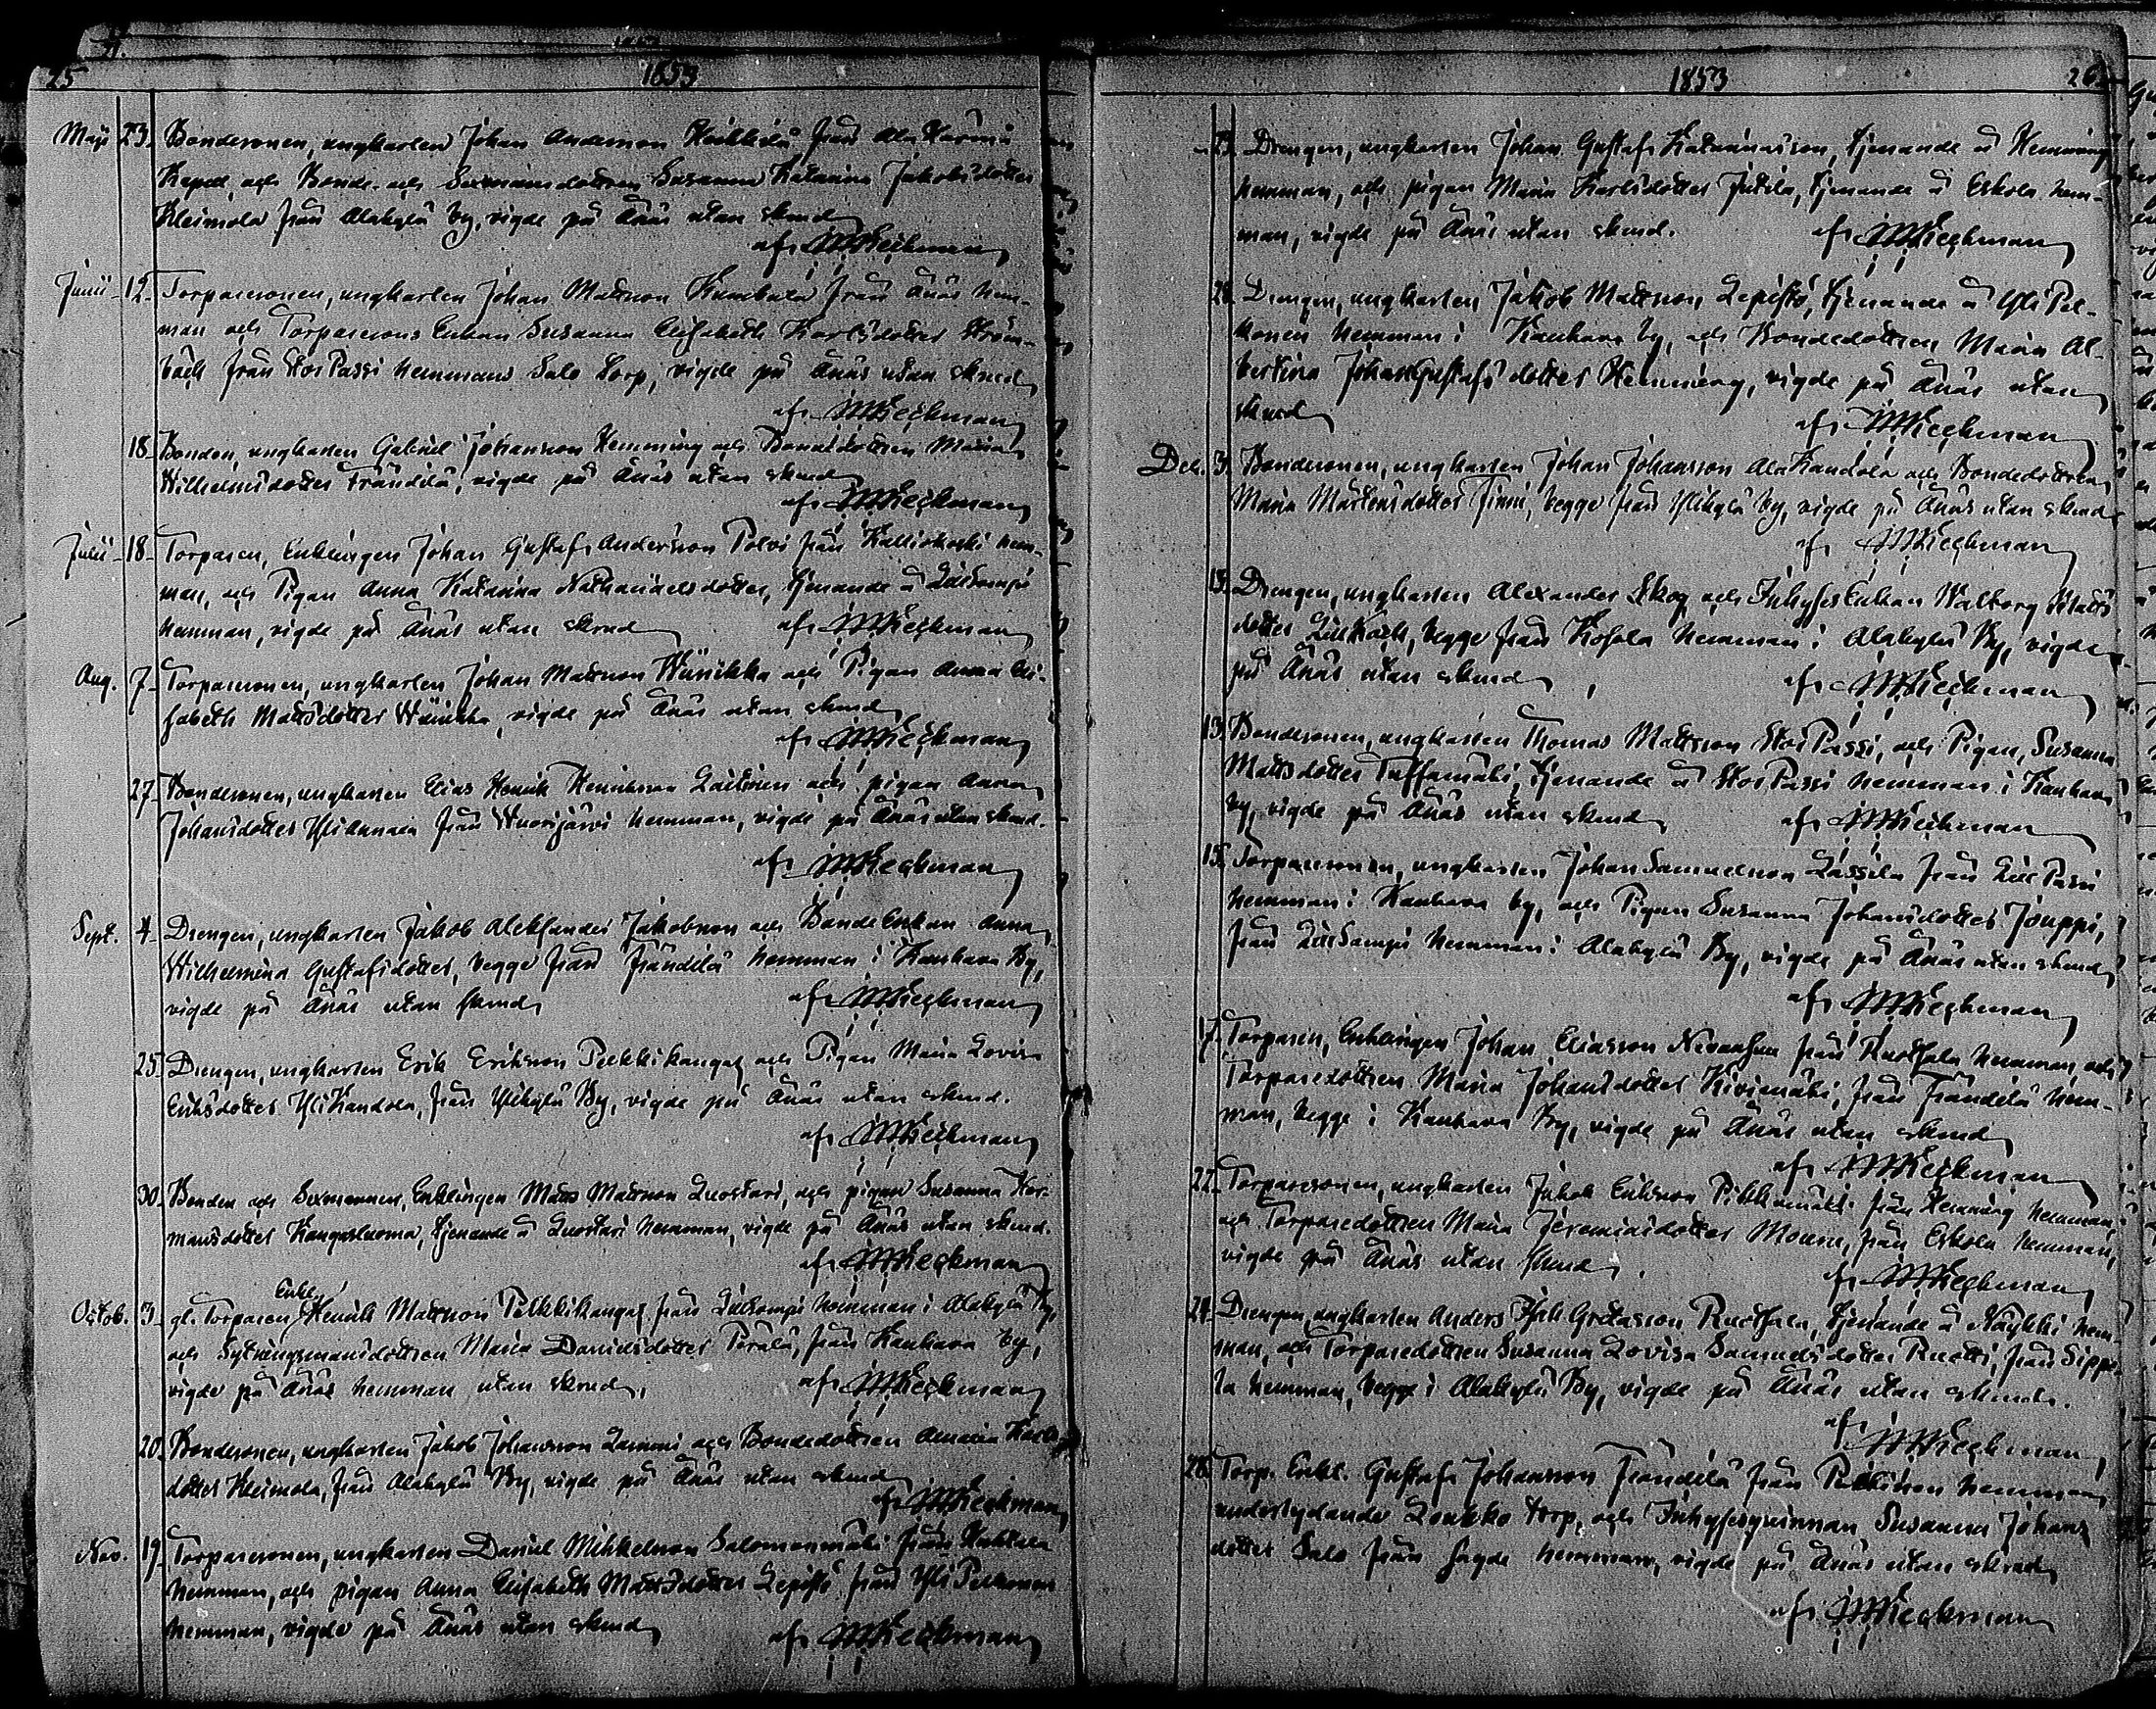 25 1853
Maji 23. Bondesonen, ungkarlen Johan Andersson Heikkilä från Ala Härmä
Kapell, och Bonde- och Sexmansdottren Susanna Katarina Jakobsdotter
Kleimola från Alakylä by, vigde på Ånäs utan skrud
af MKeckman
Junii 12. Torparesonen, ungkarlen Johan Mattsson från Ånäs hem-
man och Torparesons Enkan Susanna Elisabeth Karlsdotter Ström-
bäck från Stor Passi hemmans Salo torp, vigde på Ånäs utan skrud
af MKeckman
18. Bonden, ungkarlen Gabriel Johansson Hemming och Bondedottren Maria
Wilhelmsdotter Frändilä, vigde på Ånäs utan skrud
af MKeckman
Julii 18. Torparen, Enklingen Johan Gustaf Andersson Polvi från Kalliokoski hem-
man, och Pigan Anna Katarina Nathanaelsdotter, tjenande å Lillkamppi
hemman, vigde på Ånäs utan skrud af MKeckman
Aug. 7. Torparesonen, ungkarlen Johan Mattsson Wiinikka och Pigan Anna Eli-
sabeth Mattsdotter Wiinikka, vigde på Ånäs utan skrud
af MKeckman
27. Bondesonen, ungkarlen Elias Henrik Henriksson Laitinen och pigan Anna
Johansdotter Yliannala från Wuorijärvi hemman, vigde på Ånäs utan skrud.
af MKeckman
Sept. 4. Drengen, ungkarlen Jakob Aleksander Jakobsson och BondeEnkan Anna
Wilhelmina Gustafsdotter, begge från Frändilä hemman i Kauhava By,
vigde på Ånäs utan skrud af MKeckman
25. Drengen, ungkarlen Erik Eriksson Pelkkikangas och Pigan Maria Lovisa
Eriksdotter YliKandola, från Ylikylä By, vigde på Ånäs utan skrud.
af MKeckman
30. Bonden och Sexmannen, Enklingen Matts Mattsson Luostari, och pigan Susanna Her-
mansdotter Kangasluoma, tjenande å Luostari hemman, vigde på Ånäs utan skrud.
af MKeckman
Octob. 3. gl. Torparen, Enkl. Henrik Mattsson Pelkkikangas från Lillkamppi hemman i Alakylä By,
och Sytningsmansdottren Maria Danielsdotter Perälä, från Kauhava by,
vigde på Ånäs hemman utan skrud, af MKeckman
20. Bondesonen, ungkarlen Jakob Johansson Lammi och Bondedottren Amalia Karls
dotter Kleimola, från Alakylä By, vigde på Ånäs utan skrud
af MKeckman
Nov. 19. Torparesonen, ungkarlen Daniel Mihkelsson Salomonmäki från Huhtala
hemman, och pigan Anna Elisabeth Mattsdotter Lepistö från Yli Pelkonen
hemman, vigde på Ånäs utan skrud af MKeckman
1853 26.
Drengen, ungkarlen Johan Gustaf Katarinason, tjenande å Hemming
hemman, och pigan Maria Karlsdotter Jutila, tjenande å Eskola hem-
man, vigde på Ånäs utan skrud. af MKeckman
28. Drengen, ungkarlen Jakob Mattsson Lepistö, tjenande å Yli Pel-
konen hemman i Kauhava by, och Bondedottren Maria Al-
bertina JohanGustafsdotter Hemming, vigde på Ånäs utan
skrud af MKeckman
Dec. 3. Bondesonen, ungkarlen Johan Johansson AlaKandola och Bondedottren
Maria Mårtensdotter Finni, begge från Ylikylä By, vigde på Ånäs utan skrud
af MKeckman
13. Drengen, ungkarlen Alexander Skog och InhysesEnkan Walborg Matts
dotter LillKoch, begge från Kosola hemman i Alakylä By, vigde
på Ånäs utan skrud af MKeckman
13. Bondesonen, ungkarlen Thomas Mattsson Stor Passi, och Pigan, Susanna
Mattsdotter Tuffamäki, tjenande å Stor Passi hemman i Kauhava
by, vigde på Ånäs utan skrud af MKeckman
15. Torparesonen, ungkarlen Johan Samuelsson Lassila från Lill Passi
hemman i Kauhava by, och Pigan Susanna Johansdotter Jouppi,
från Lillkamppi hemman i Alakylä By, vigde på Ånäs utan skrud
af MKeckman
17. Torparen, Enklingen Johan Eliasson från Ruotsala hemman, och
Torparedottren Maria Johansdotter Kivimäki, från Frändilä hem-
man, begge i Kauhava By, vigde på Ånäs utan skrud
af MKeckman
22. Torparesonen, ungkarlen Jakob Eriksson från Hemming hemman,
och Torparedottren Maria Jeremiasdotter från Eskola hemman,
vigde på Ånäs utan skrud, af MKeckman
24. Drengen, ungkarlen Anders Gretasson Ruotsala, tjenande å Näykki hem-
man, och Torparedottren Susanna Lovisa Samuelsdotter Ruotti, från Sippo-
la hemman, begge i Alakylä By, vigde på Ånäs utan skrud.
af MKeckman
28. Torp. Enkl. Gustaf Johansson Frändilä från hemman
underlydande Loukko torp, och Inhysesqvinnan Susanna Johans
dotter Salo från sagde hemman, vigde på Ånäs utan skrud
af MKeckman